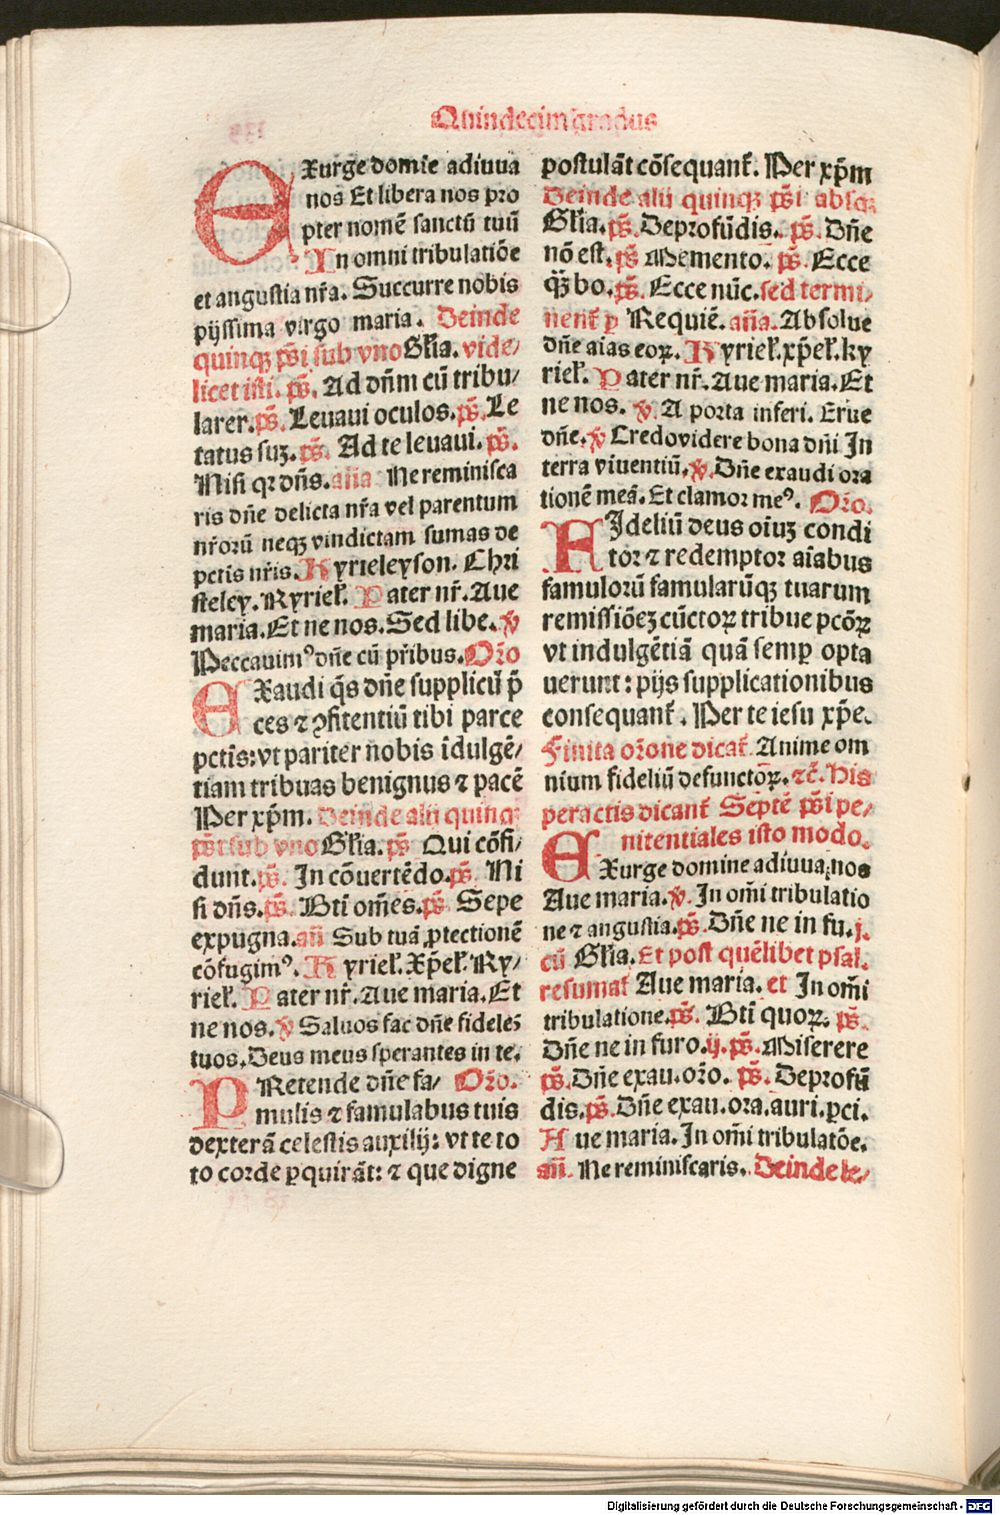 Quindecim gradus
EXurge domīe adiuua
nos Et libera nos pro
pter nomē sanctū tuū
In omni tribulatiōe
et angustia nr̄a. Succurre nobis
pijssima virgo maria. Deinde
quinqꝫ ps̄i sub vno Gl̄ia. vide⸗
licet isti. ps̄. Ad dn̄m cū tribu⸗
larer. ps̄. Leuaui oculos. ps̄. Le
tatus suꝫ. ps̄. Ad te leuaui. ps̄.
Nisi qꝛ dn̄s. an̄a Ne reminisca
ris dn̄e delicta nr̄a vel parentum
nr̄orū neqꝫ vindictam sumas de
pctis nr̄is. Kyrieleyson. Chri
steley. Kyriel̄. Pater nr̄. Aue
maria. Et ne nos. Sed libe. v̄
Peccauimꝰ dn̄e cū pr̄ibus. Or̄o
EXaudi q̄s dn̄e supplicū p̄
ces ⁊ ꝯfitentiū tibi parce
pctīs: vt pariter nobis īdulgē⸗
tiam tribuas benignus ⁊ pacē
Per xp̄m. Deinde alij quinqꝫ
ps̄i sub vno Gl̄ia. ps̄ Qui cōfi⸗
dunt. ps̄. In cōuertēdo. ps̄. Ni
si dn̄s. ps̄. Bti om̄es. ps̄ Sepe
expugna. an̄ Sub tuā ꝓtectionē
cōfugimꝰ. Kyriel̄. Xp̄el̄. Ky⸗
riel̄. Pater nr̄. Aue maria. Et
ne nos. v̄ Saluos fac dn̄e fideles
tuos. Deus meus sperantes in te.
PRetende dn̄e fa⸗ Or̄o.
mulis ⁊ famulabus tuis
dexterā celestis auxilij: vt te to
to corde ꝑquirāt: ⁊ que digne
postulāt cōsequant̄. Per xp̄m
Deinde alij quinqꝫ ps̄i absqꝫ
Gl̄ia. ps̄. De profūdis. ps̄. Dn̄e
nō est. ps̄ Memento. ps̄. Ecce
q̄ꝫ bo. ps̄. Ecce nūc. sed termi⸗
nent̄ ꝑ Requiē. an̄a. Absolue
dn̄e aīas eoꝝ. Kyriel̄. xp̄el̄. ky
riel̄. Pater nr̄. Aue maria. Et
ne nos. v̄. A porta inferi. Erue
dn̄e. v̄ Credo videre bona dn̄i In
terra viuentiū. v̄. Dn̄e exaudi ora
tionē meā. Et clamor meꝰ. Or̄o.
FIdeliū deus oīuꝫ condi
tor ⁊ redemptor aīabus
famulorū famularūqꝫ tuarum
remissiōeꝫ cūctoꝝ tribue pcōꝝ
vt indulgētiā quā semꝑ opta
uerunt: pijs supplicationibus
consequant̄. Per te iesu xp̄e.
Finita or̄one dicat̄. Anime om
nium fideliū defunctoꝝ. ⁊c̄. His
peractis dicant̄ Septē ps̄i pe⸗
nitentiales isto modo.
EXurge domine adiuua nos
Aue maria. v̄. In om̄i tribulatio
ne ⁊ angustia. ps̄. Dn̄e ne in fu. j.
cū Gl̄ia. Et post quēlibet psal.
resumat̄ Aue maria. et In om̄i
tribulatione. ps̄. Bti quoꝝ. ps̄.
Dn̄e ne in furo. ij. ps̄. Miserere
ps̄. Dn̄e exau. or̄o. ps̄. De profū
dis. ps̄. Dn̄e exau. ora. auri. ꝑci.
Aue maria. In om̄i tribulatōe.
an̄. Ne reminiscaris. Deinde le⸗
Digitalisierung gefördert durch die Deutsche Forschungsgemeinschaft - DFG